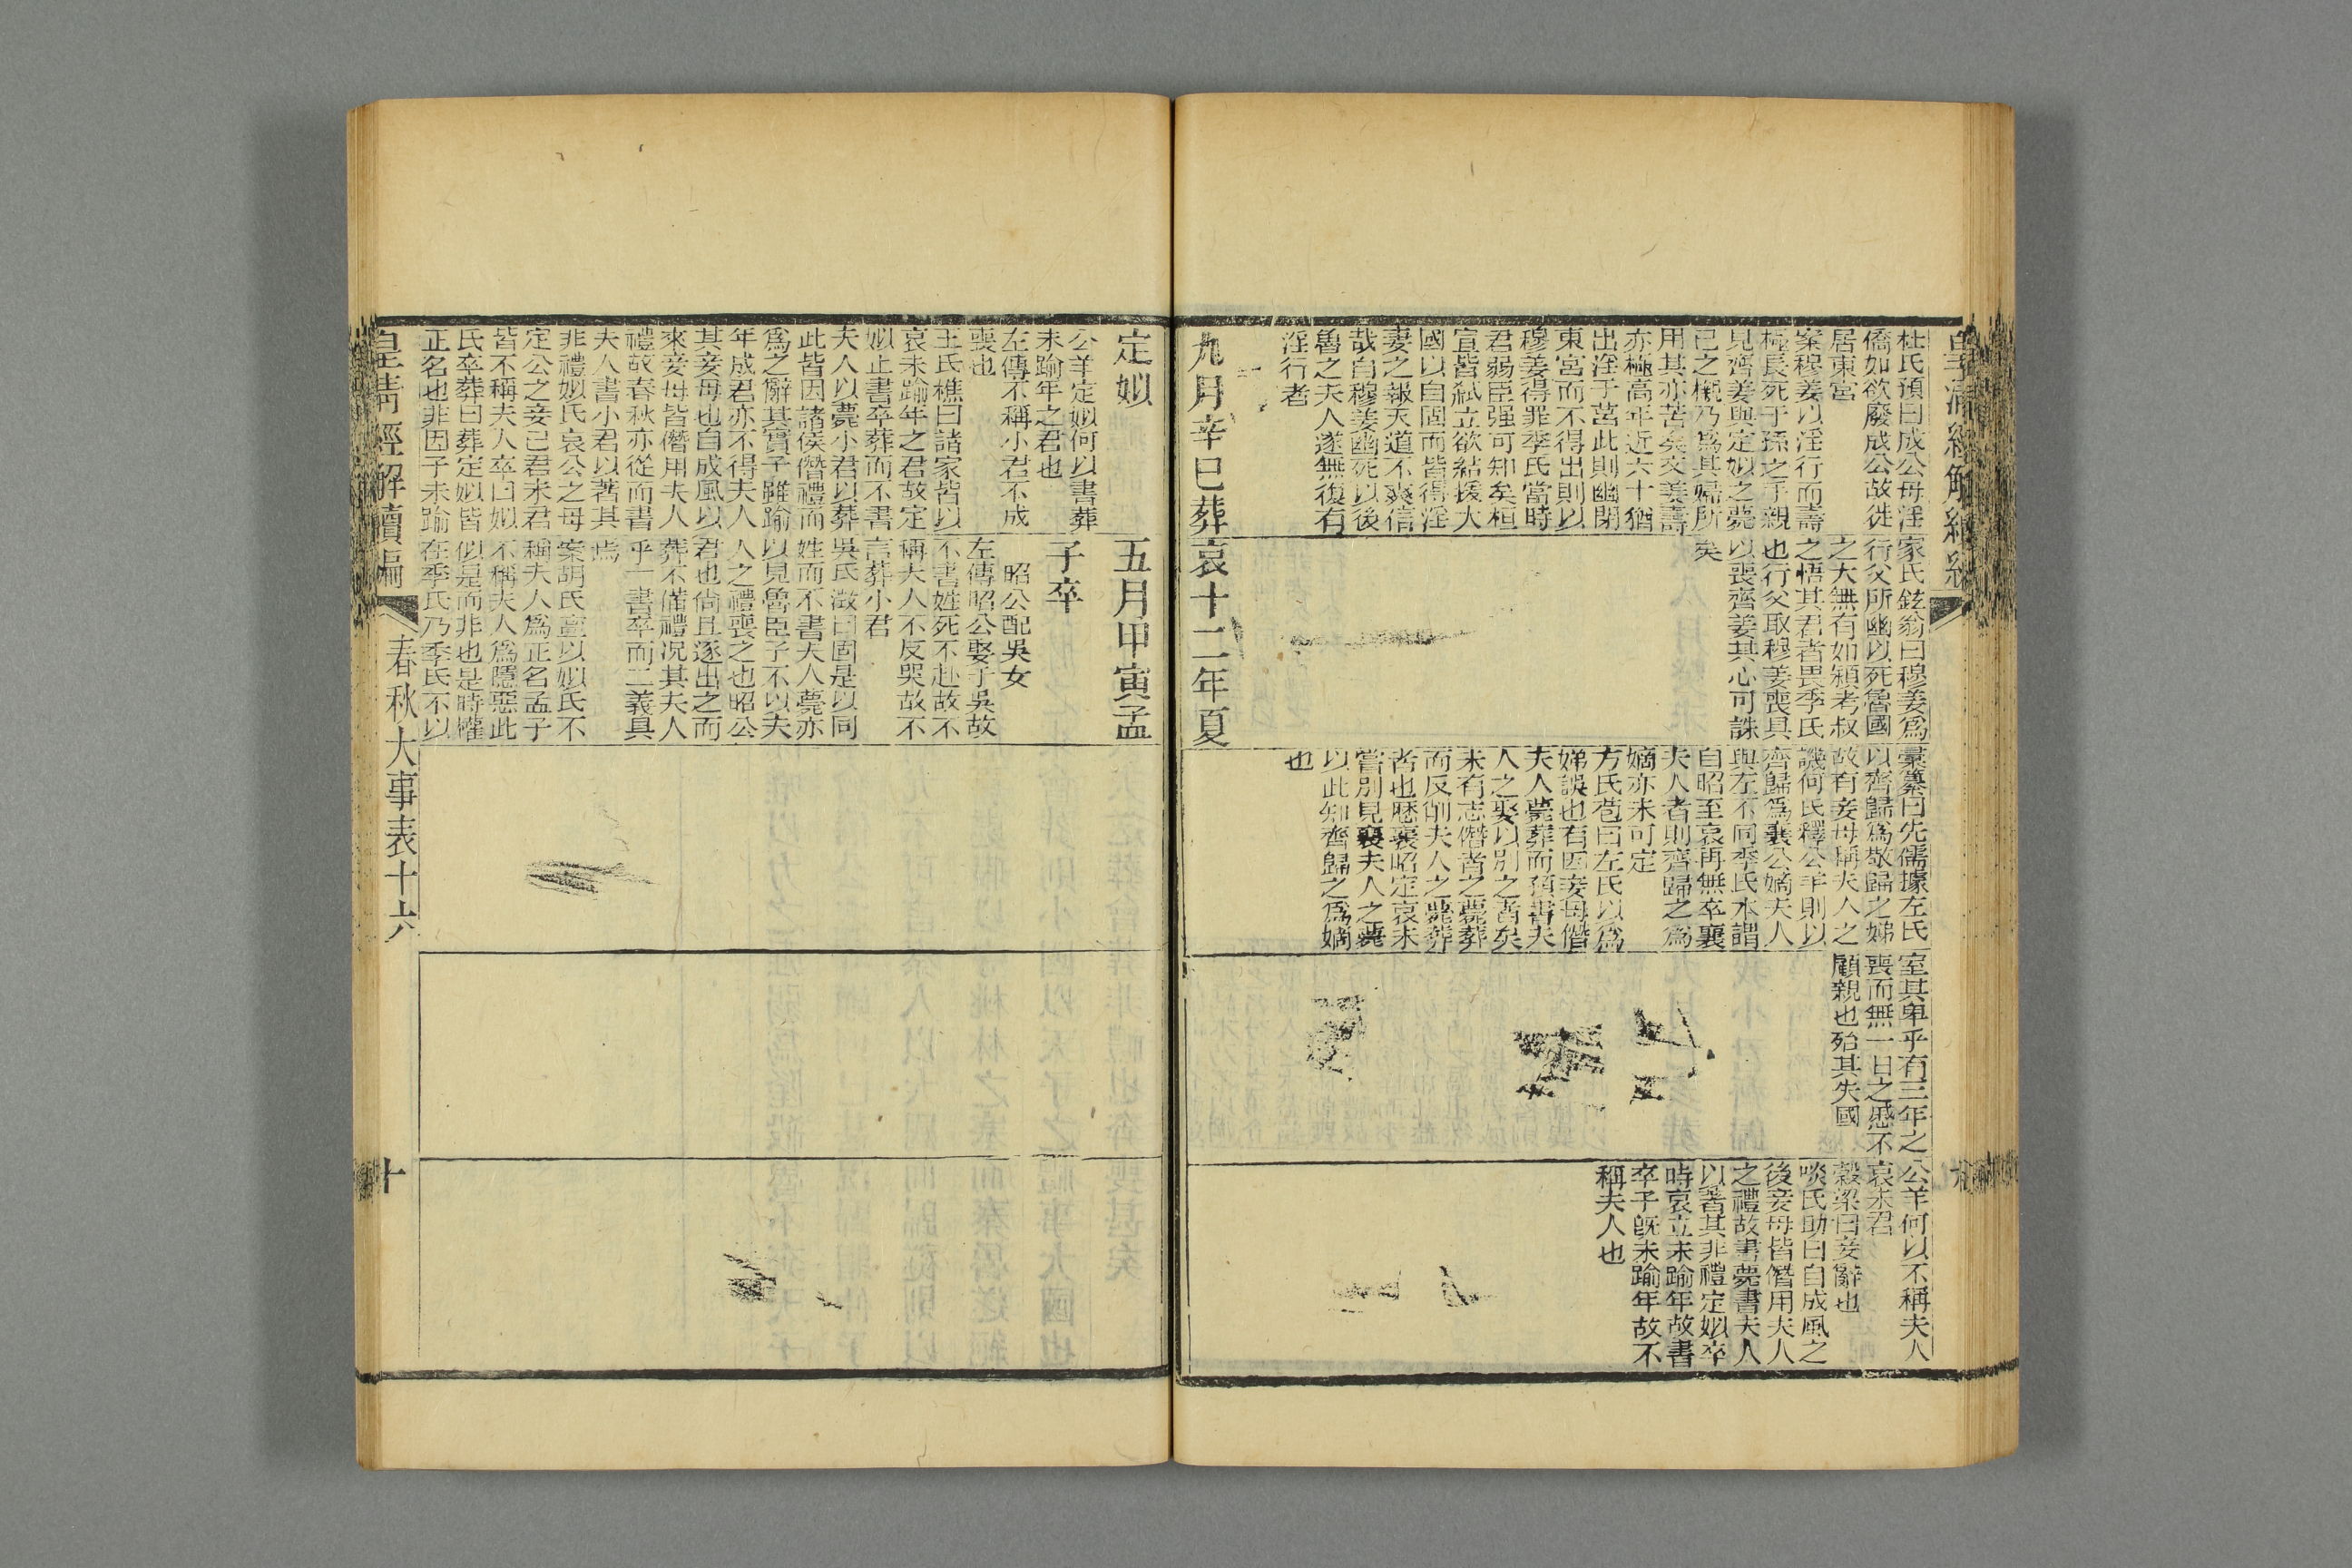 皇清經解續編
杜氏預曰成公母淫
僑如欲廢成公故徙
居東宮
案穆姜以淫行而壽
極長死于孫之手親
見齊姜與定姒之薨
已之櫬乃爲其婦所
用其亦苦矣文姜壽
亦極高年近六十猶
出淫于莒此則幽閉
東宮而不得出則以
穆姜得罪季氏當時
君弱臣强可知矣桓
宣皆弑立欲結援大
國以自固而皆得淫
妻之報天道不爽信
哉自穆姜幽死以後
魯之夫人遂無復有
淫行者
九月辛巳葬
家氏鉉翁曰穆姜爲
行父所幽以死魯國
之大無有如潁考叔
之悟其君者畏季氏
也行父取穆姜喪具
以喪齊姜其心可誅
矣
哀十二年夏
彙纂曰先儒據左氏
以齊歸爲敬歸之娣
故有妾母稱夫人之
譏何氏釋公羊則以
齊歸爲襄公嫡夫人
與左不同季氏本謂
自昭至哀再無卒襄
夫人者則齊歸之爲
嫡亦未可定
方氏苞曰左氏以爲
娣誤也有因妾母僭
夫人薨葬而預書夫
人之娶以別之者矣
未有志僭者之薨葬
而反削夫人之薨葬
者也歷襄昭定哀未
嘗別見襄夫人之薨
以此知齊歸之爲嫡
也
室其卑乎有三年之
喪而無一日之慼不
顧親也殆其失國
公羊何以不稱夫人
哀未君
穀梁曰妾辭也
啖氏助曰自成風之
後妾母皆僭用夫人
之禮故書薨書夫人
以著其非禮定姒卒
時哀立未踰年故書
卒子既未踰年故不
稱夫人也
定姒
公羊定姒何以書葬
未踰年之君也
左傳不稱小君不成
喪也
王氏樵曰諸家皆以
哀未踰年之君故定
姒止書卒葬而不書
夫人以薨小君以葬
此皆因諸侯僭禮而
爲之辭其實子雖踰
年成君亦不得夫人
其妾母也自成風以
來妾母皆僭用夫人
禮故春秋亦從而書
夫人書小君以著其
非禮姒氏哀公之母
定公之妾已君未君
皆不稱夫人卒曰姒
氏卒葬曰葬定姒皆
正名也非因子未踰
五月甲寅孟
子卒
昭公配吳女
左傳昭公娶于吳故
不書姓死不赴故不
稱夫人不反哭故不
言葬小君
吳氏澂曰固是以同
姓而不書夫人薨亦
以見魯臣子不以夫
人之禮喪之也昭公
君也尙且逐出之而
葬不備禮况其夫人
乎一書卒而二義具
焉
案胡氏亶以姒氏不
稱夫人爲正名孟子
不稱夫人爲隱惡此
似是而非也是時權
在季氏乃季氏不以
皇清經解續編
春秋大事表十六
十